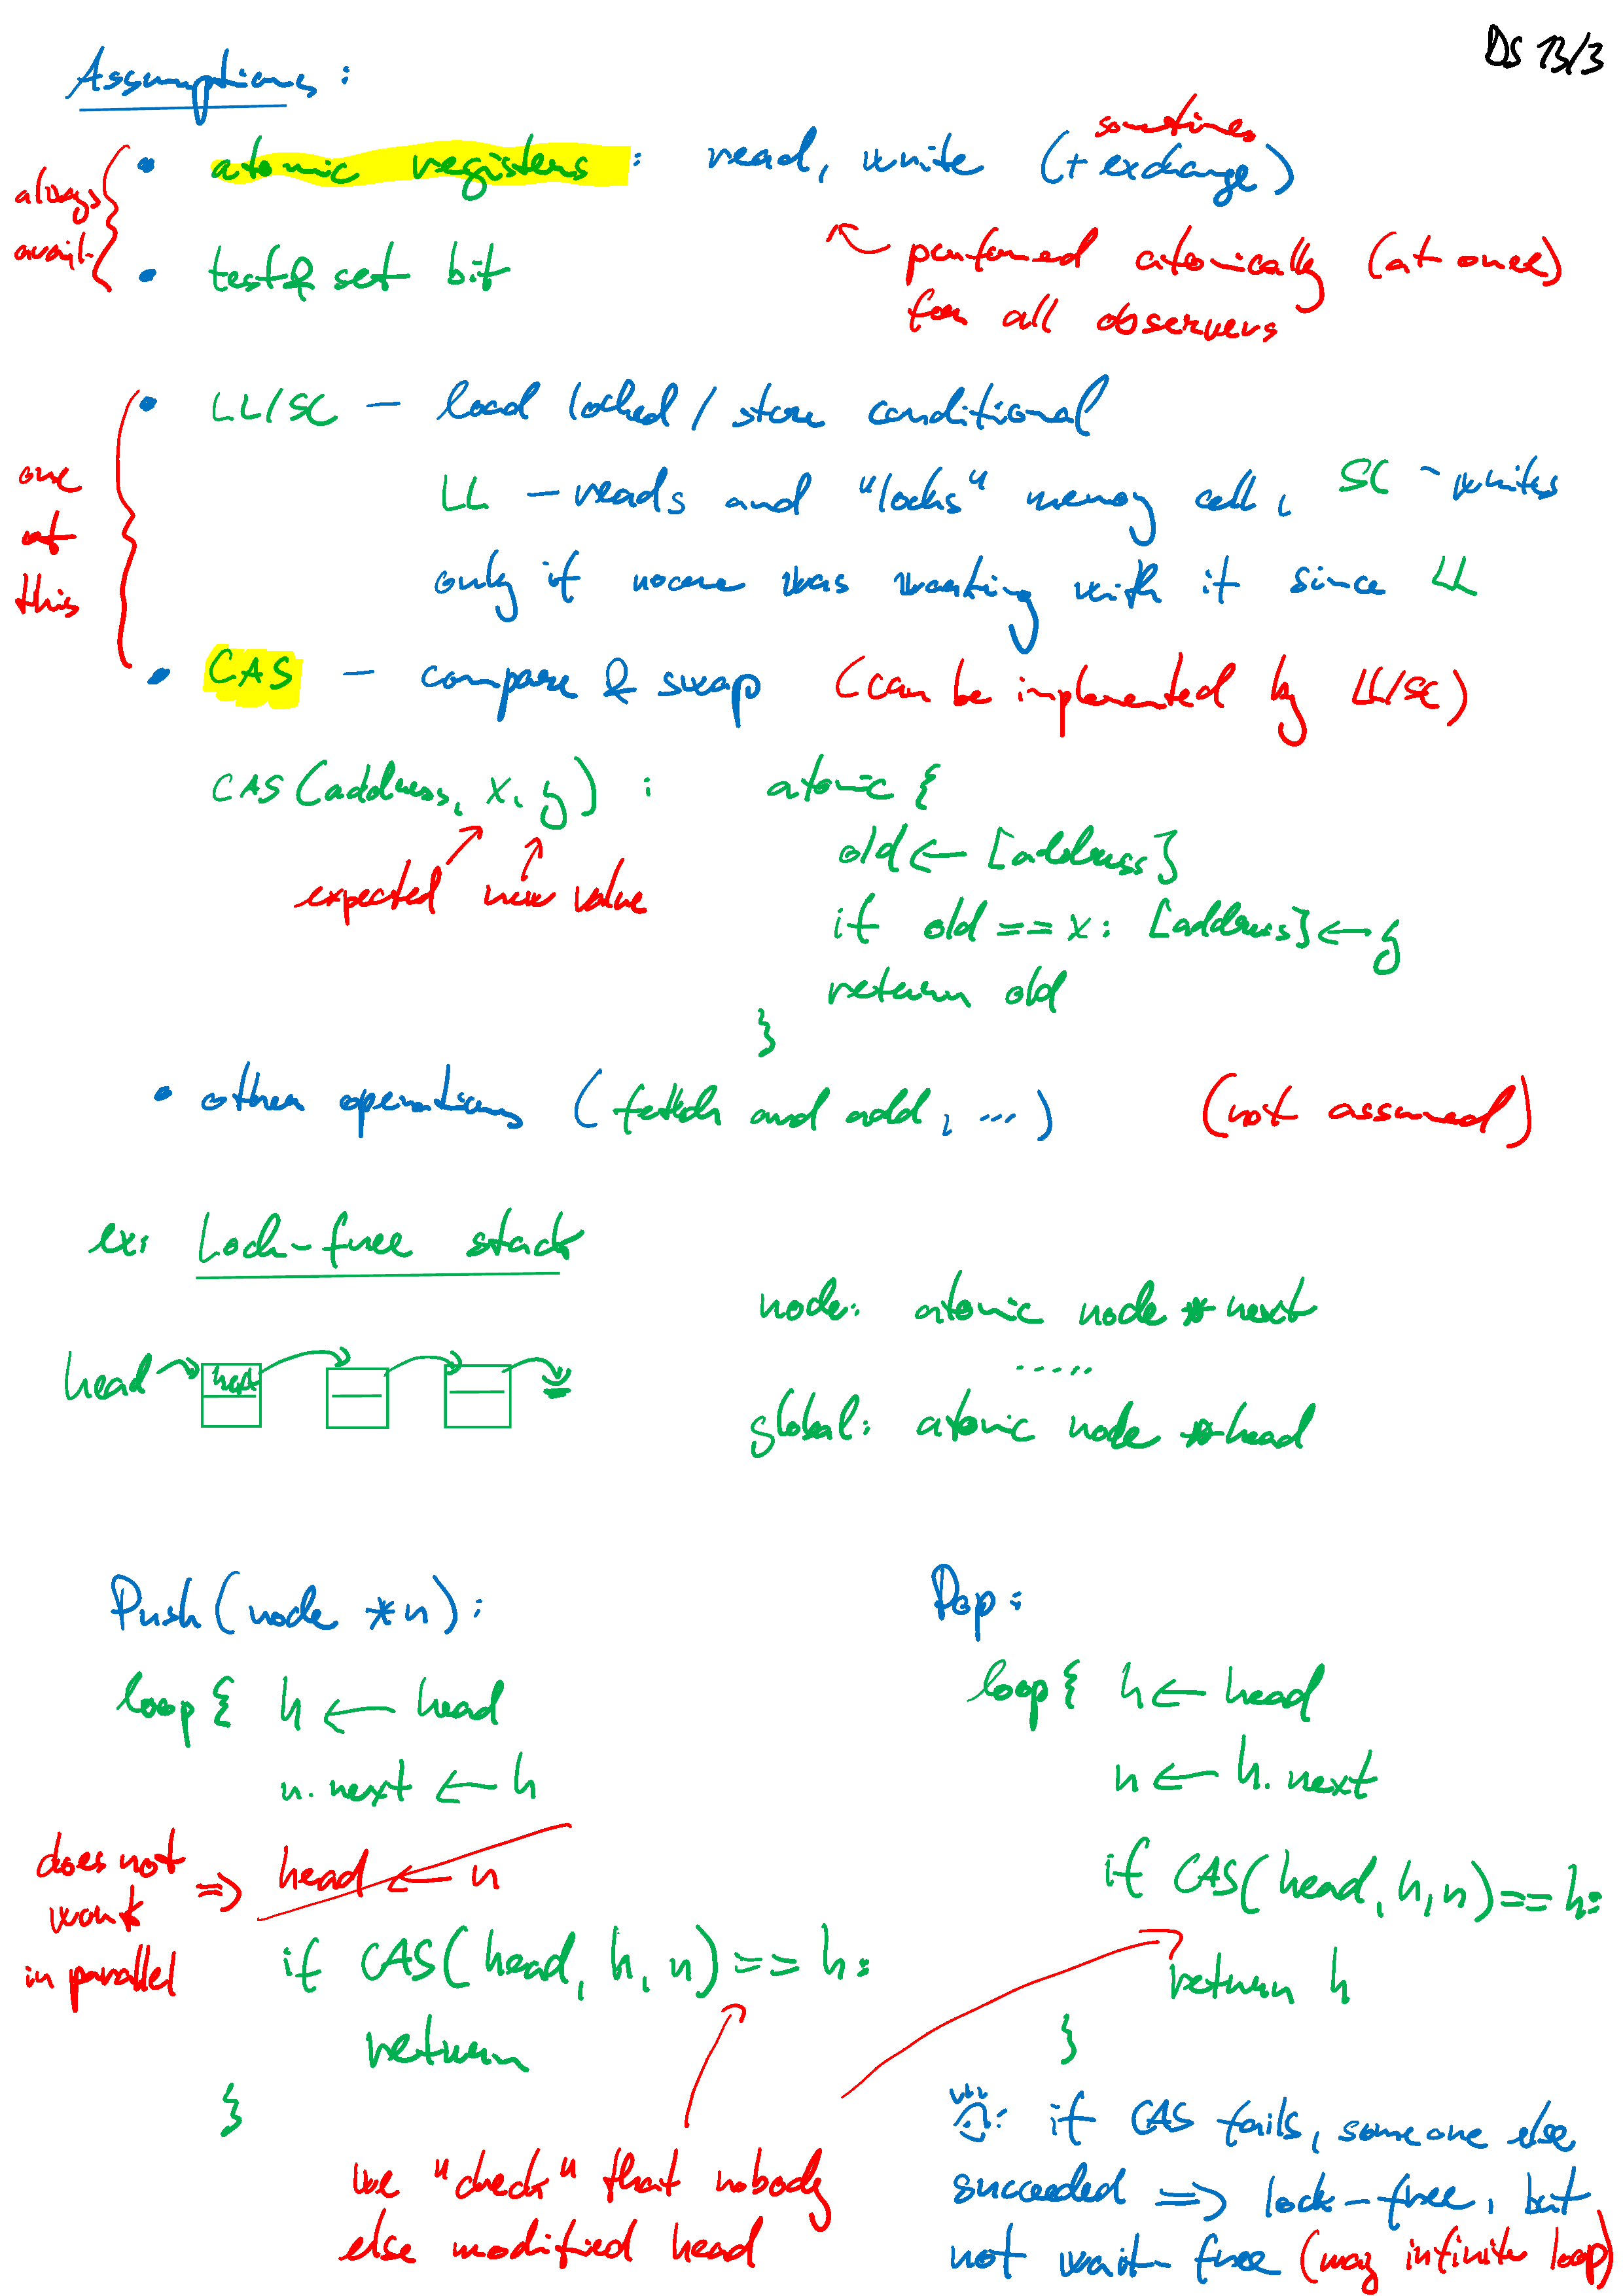 DS 13/3
Assumptions:
always avail.
• atomic registers: read, write (+ exchange) sometimes
performed atomically (at once)
for all observers
• test&set bit
one of this
• LL/SC – load locked / store conditional
LL – reads and "locks" memory cell, SC – writes
only if noone was working with it since LL
• CAS – compare & swap (can be implemented by LL/SC)
CAS(address, x, y): atomic {
expected new value
old ← [address]
if old == x: [address] ← y
return old
}
• other operations (fetch and add, ...) (not assumed)
ex: Lock-free stack
node: atomic node *next
.....
head next
global: atomic node *head
Push(node *n):
loop { h ← head
n.next ← h
does not work in parallel ⇒ head ← n
if CAS(head, h, n) == h:
return
}
we "check" that nobody
else modified head
Pop:
loop { h ← head
n ← h.next
if CAS(head, h, n) == h:
return h
}
: if CAS fails, someone else
succeeded ⇒ lock-free, but
not wait-free (may infinite loop)